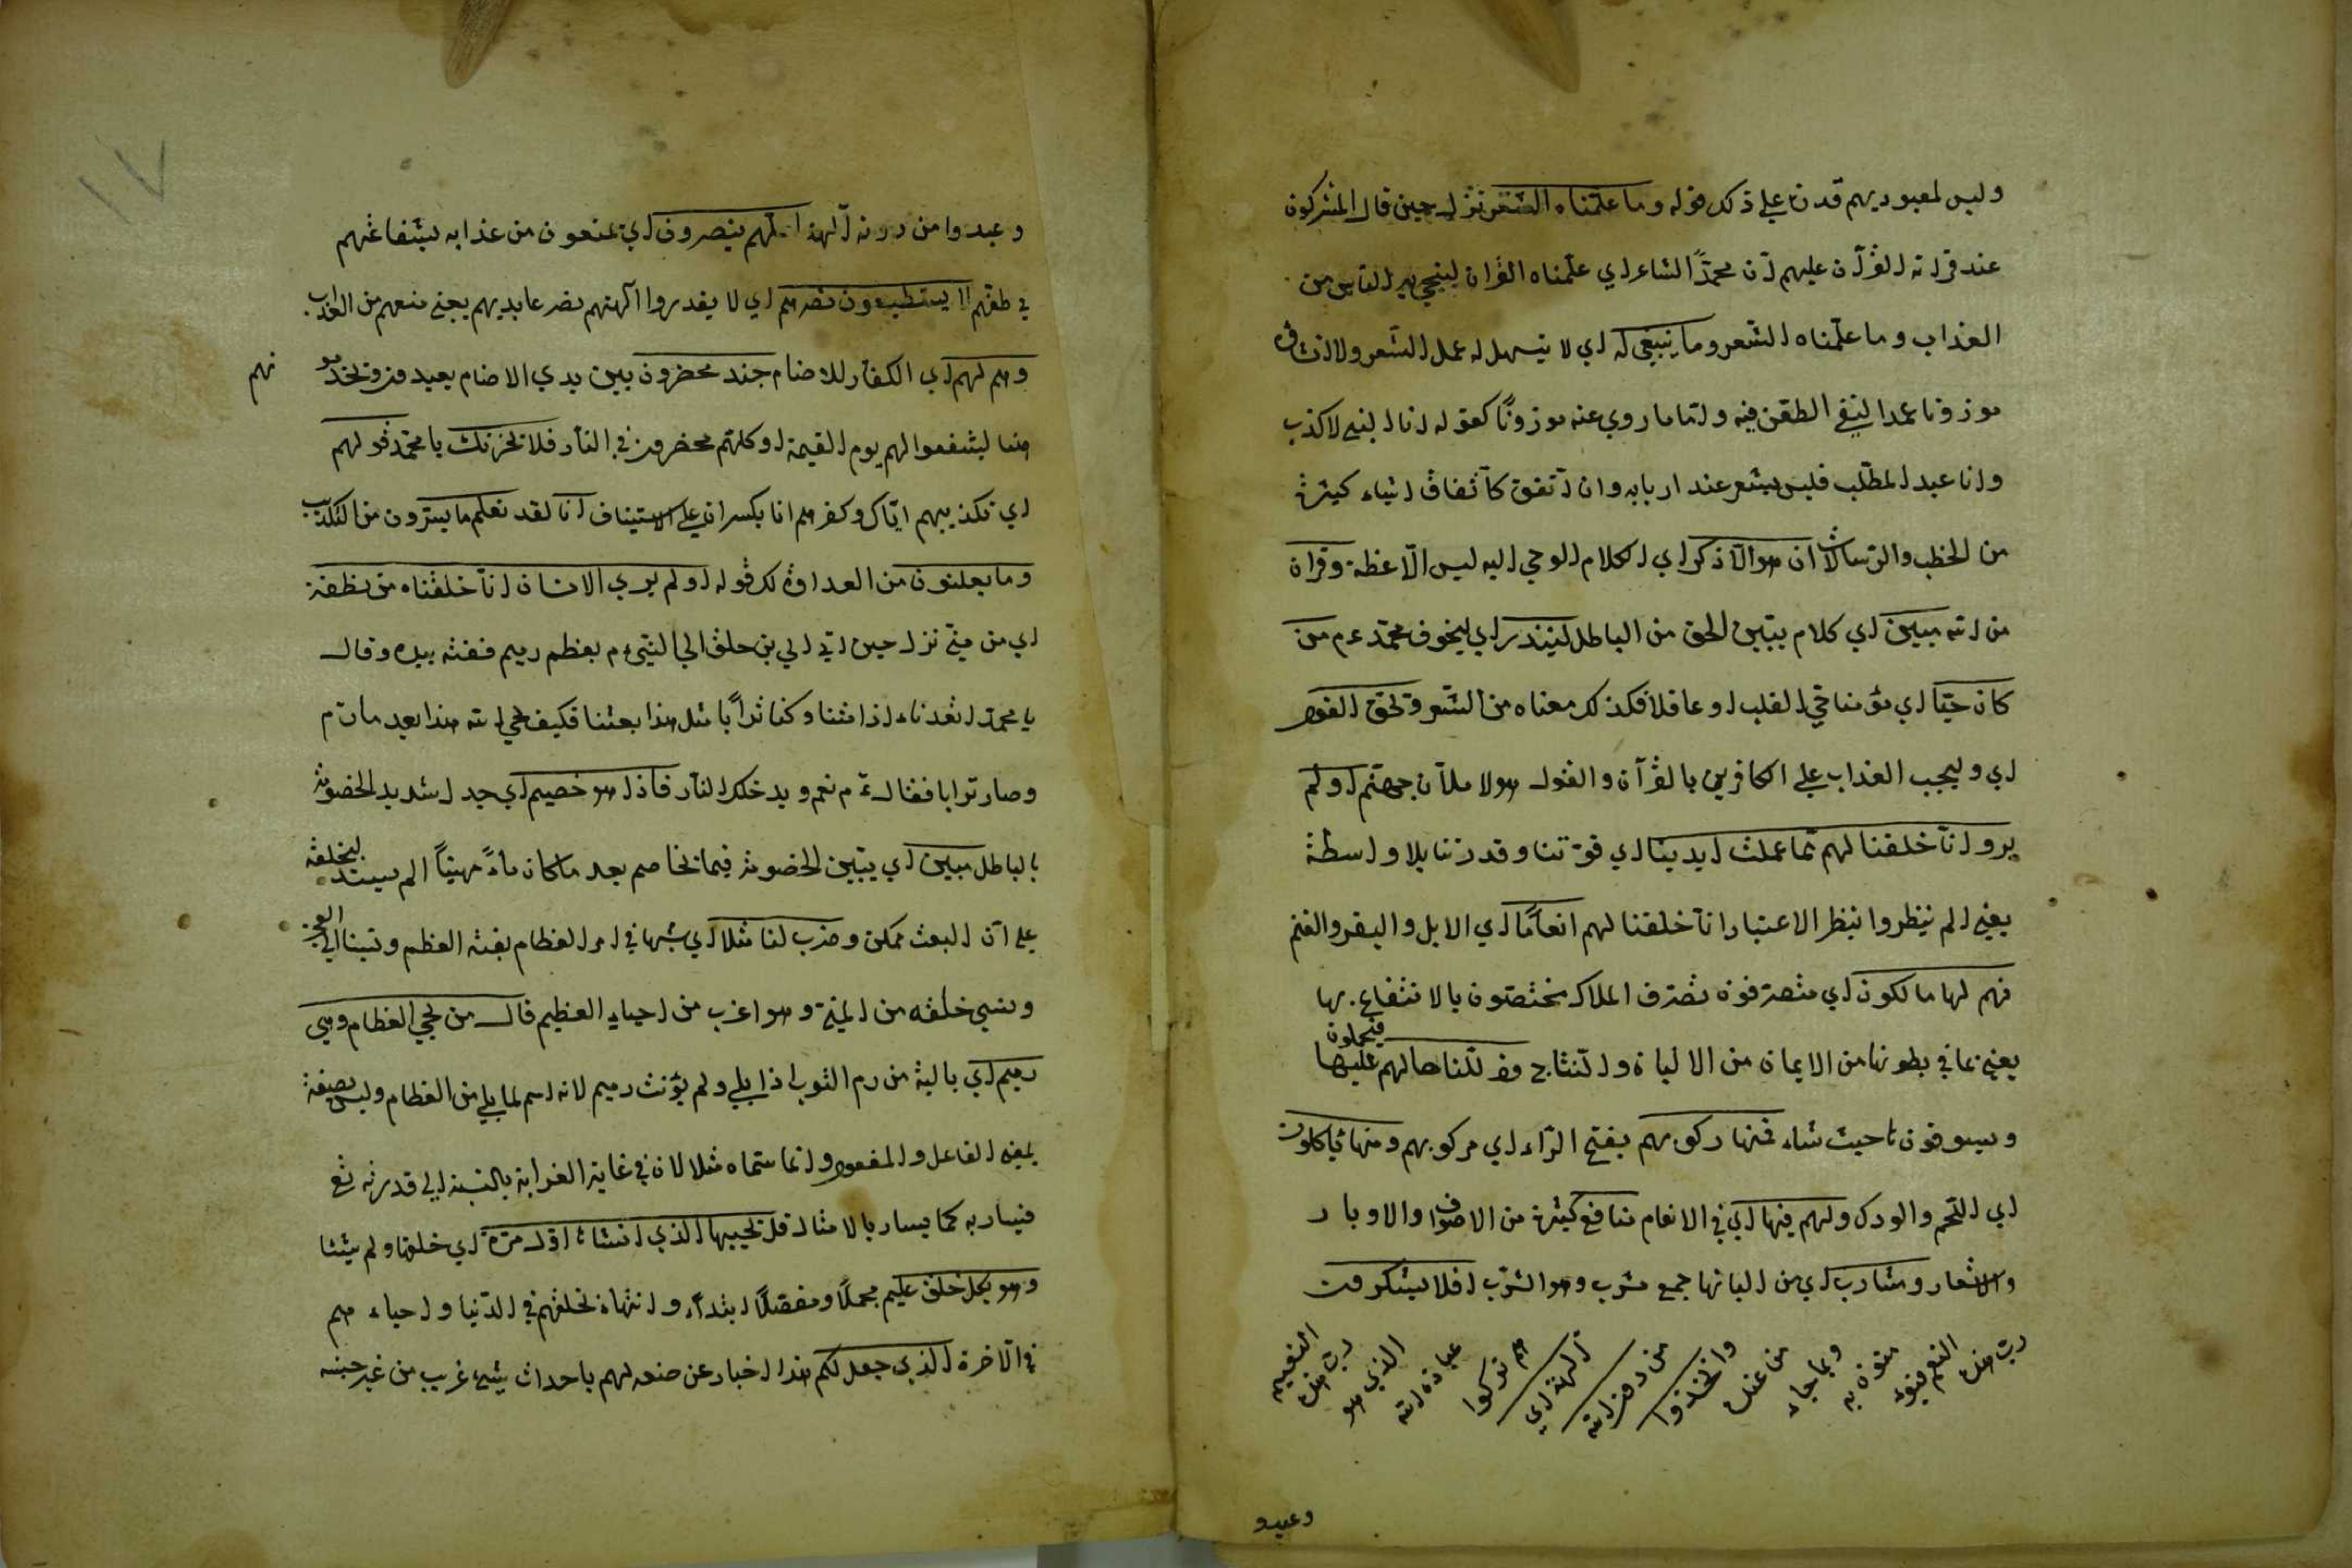 وليس لمعبوديهم قدرة على ذلك قوله وما علمناه الشعر نزل حين قال المشركون
عند قراءته القرآن عليهم ان محمدًا لشاعر اي علمناه القرآن لينجي به الناس من
العذاب وما علمناه الشعر وما ينبغي له اي لا يتسهل له عمل الشعر ولا انشاؤه
موزونا عمدا لنفي الطعن فيه وانما ما روي عنه موزونًا كقوله انا النبي لا كذب
وانا عبد المطلب فليس بشعر عند اربابه وان اتفق كاتفاق اشياء كثيرة
من الخطب والرسالات ان هو الا ذكر اي الكلام الوحي اليه ليس الا عظة وقرآن
من الله مبين اي كلام يبين الحق من الباطل لينذر اي ليخوف محمد عم من
كان حيّا اي مؤمنا حي القلب او عاقلا فكذلك معناه من الشعر ويحق القول
اي وليجب العذاب على الكافرين بالقرآن والقول هو لاملأن جهنم اولم
يروا انا خلقنا لهم مما عملت ايدينا اي قوتنا وقدرتنا بلا واسطة
يعني الم ينظروا بنظر الاعتبار انا خلقنا لهم انعامًا اي الابل والبقر والغنم
فهم لها مالكون اي متصرفون تصرف الملاك مختصون بالانتفاع بها
يعني بما في بطونها من الالبان والنتاج وذللناها لهم فيحملون عليها
ويسوقونها حيث شاء فمنها ركوبهم بفتح الراء اي مركوبهم ومنها يأكلون
اي اللحم والودك ولهم فيها اي في الانعام منافع كثيرة من الاصواف والاوبار
والاشعار ومشارب اي من البانها جمع مشرب وهو الشرب افلا يشكرون
رب هذه
النعم فيؤ
منون به
وبما جاء
من عنده
واتخذوا
من دون الله
آلهة اي
هم تركوا
عبادة الله
الذي هو
رب هذه
النعيم
وعبدو
وعبدوا من دونه آلهة لعلهم ينصرون اي يمنعون من عذابه بشفاعتهم
في ظنهم لا يستطيعون نصرهم اي لا يقدروا آلهتهم نصر عابديهم يعني منعهم من العذاب
وهم لهم اي الكفار للاصنام جند محضرون بين يدي الاصنام يعبدون ويخدمو نهم
هنا ليشفعوا لهم يوم القيمة او كلهم محضرون في النار فلا يحزنك يا محمد قولهم
اي تكذيبهم اياك وكفرهم انا بكسر ان على الاستيناف انا لقد نعلم ما يسرون من التكذيب
وما يعلنون من العداوة لك قوله اولم يرى الانسان انا خلقناه من نطفة
اي من مني نزل حين اتى ابي بن خلف الى النبي عم بعظم رميم ففته بيده وقال
يا محمد اتعدنا ائذا متنا وكنا ترابًا مثل هذا بعثنا فكيف يحي الله هذا بعد ما رم
وصار ترابا فقال عم نعم ويدخلك النار فاذا هو خصيم اي جدل شديد الخصومة
بالباطل مبين اي يبين الخصومة فيما يخاصم بعد ما كان ماءً مهينًا الم يستدل بخلقه
على ان البعث ممكن وضرب لنا مثلا اي شبها في امر العظام بفتة العظم ونسبنا الى العجز
ونسي خلقه من المني وهو اغرب من احياء العظيم قال من يحي العظام وهي
رميم اي بالية من رم الثوب اذا بلي ولم يؤنث رميم لانه اسم لما بلي من العظام وليس بصفة
بمعنى الفاعل والمفعول وانما سماه مثلا لان في غاية الغرابة بالنسبة الى قدرته تع
فيسار به كما يسار بالامثال قل يحييها الذي انشأها اول مرة اي خلقها ولم يشئا
وهو بكل خلق عليم مجملًا ومفصلًا ابتداء وانتهاء يخلقهم في الدنيا واحياء هم
في الآخرة الذي جعل لكم هذا اخبار عن صنعه لهم باحداث شيء غريب من غير جنسه
١٧